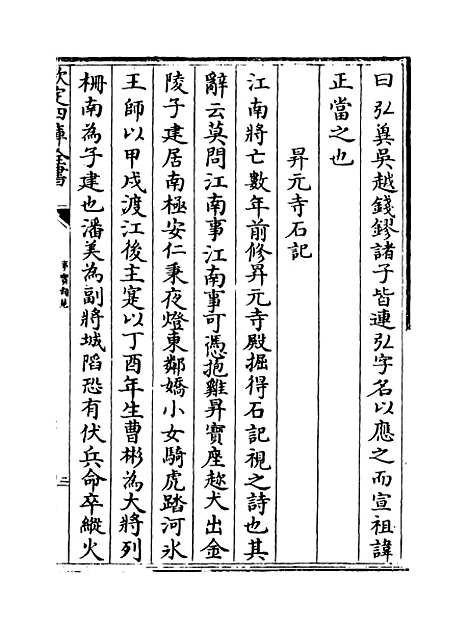 曰弘冀吳越錢鏐諸子皆連弘字名以應之而宣祖諱
正當之也
昇元寺石記
江南將亡數年前修昇元寺殿掘得石記視之詩也其
辭云莫問江南事江南事可憑抱雞昇寶座趂犬出金
陵子建居南極安仁秉夜燈東鄰嬌小女騎虎踏河氷
王師以甲戌渡江後主寔以丁酉年生曹彬為大將列
柵南為子建也潘美為副將城陷恐有伏兵命卒縱火
欽定四庫全書
二